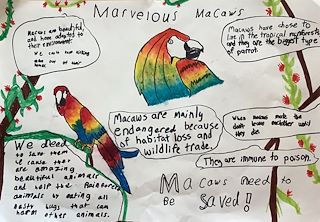 Marvelous Macaws
Macaws are beautiful,
and have adapted to
their environment.
We can't
Macaws have chose to
live in the tropical rainforests
and they are the biggest type
of parrot.
Macaws are mainly
endangered because
of habitat loss and
wildlife trade.
When macaws mate the
don't leave eachother until
they die.
They are immune to poison.
We need
to save them
because they
are amazing
beautiful animals
and help the Rainforest
animals by eating all
nasty bugs that can
harm other animals.
Macaws need to
be Saved!